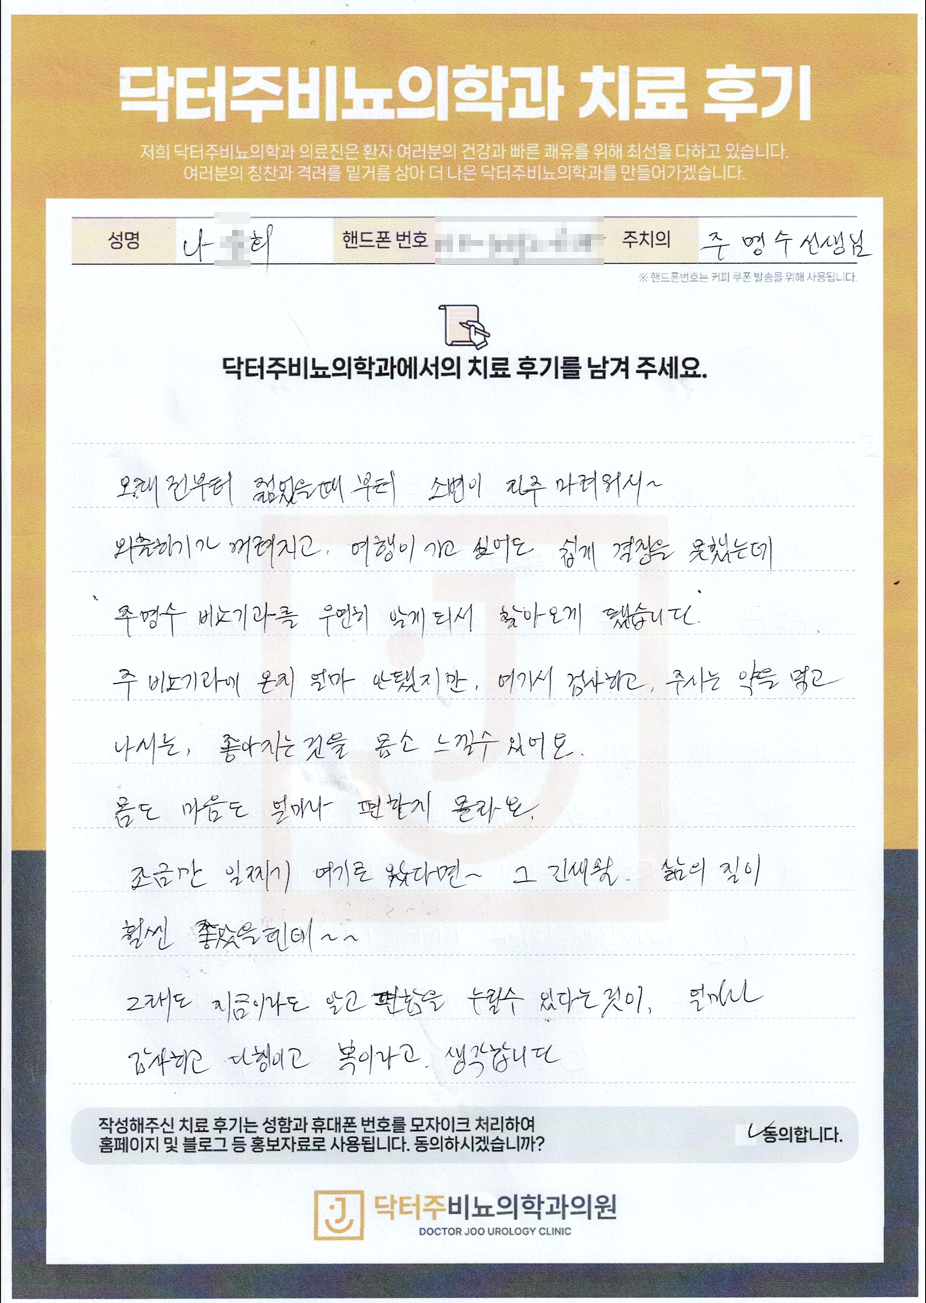 닥터주비뇨의학과 치료 후기
저희 닥터주비뇨의학과 의료진은 환자 여러분의 건강과 빠른 쾌유를 위해 최선을 다하고 있습니다.
여러분의 칭찬과 격려를 밑거름 삼아 더 나은 닥터주비뇨의학과를 만들어가겠습니다.
성명 나 희 핸드폰 번호 주치의 주명수선생님
※ 핸드폰번호는 커피 쿠폰 발송을 위해 사용됩니다.
닥터주비뇨의학과에서의 치료 후기를 남겨 주세요.
오래 전부터 젊었을때 부터 소변이 자주 마려워서~
외출하기가 꺼려지고, 여행이 가고 싶어도 쉽게 결정을 못했는데
주명수 비뇨기과를 우연히 알게되서 찾아오게 됐습니다.
주 비뇨기과에 온지 얼마 안됐지만, 여기서 검사하고, 주시는 약을 먹고
나서는, 좋아지는것을 몸소 느낄수 있어요.
몸도 마음도 얼마나 편한지 몰라요.
조금만 일찍기 여기로 왔다면~ 그 긴세월 삶의 질이
훨씬 좋았을텐데~~
그래도 지금이라도 알고 편함을 누릴수 있다는것이, 얼마나
감사하고 다행이고 복이라고 생각합니다
작성해주신 치료 후기는 성함과 휴대폰 번호를 모자이크 처리하여
홈페이지 및 블로그 등 홍보자료로 사용됩니다. 동의하시겠습니까?
동의합니다.
닥터주비뇨의학과의원
DOCTOR JOO UROLOGY CLINIC